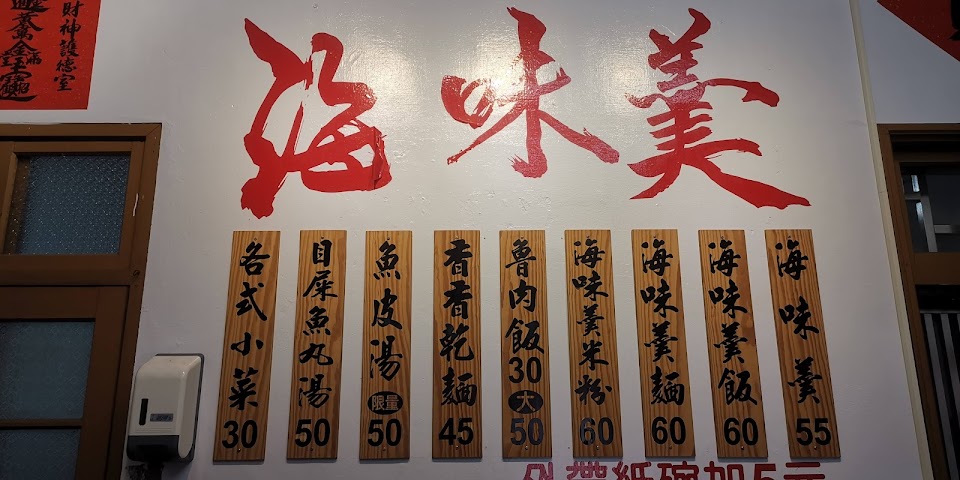 財神護德室
海味羹
海味羹 55
海味羹飯 60
海味羹麵 60
海味羹米粉 60
魯肉飯 30 大 50
香香乾麵 45
魚皮湯 限量 50
目屎魚丸湯 50
各式小菜 30
外帶紙碗加5元